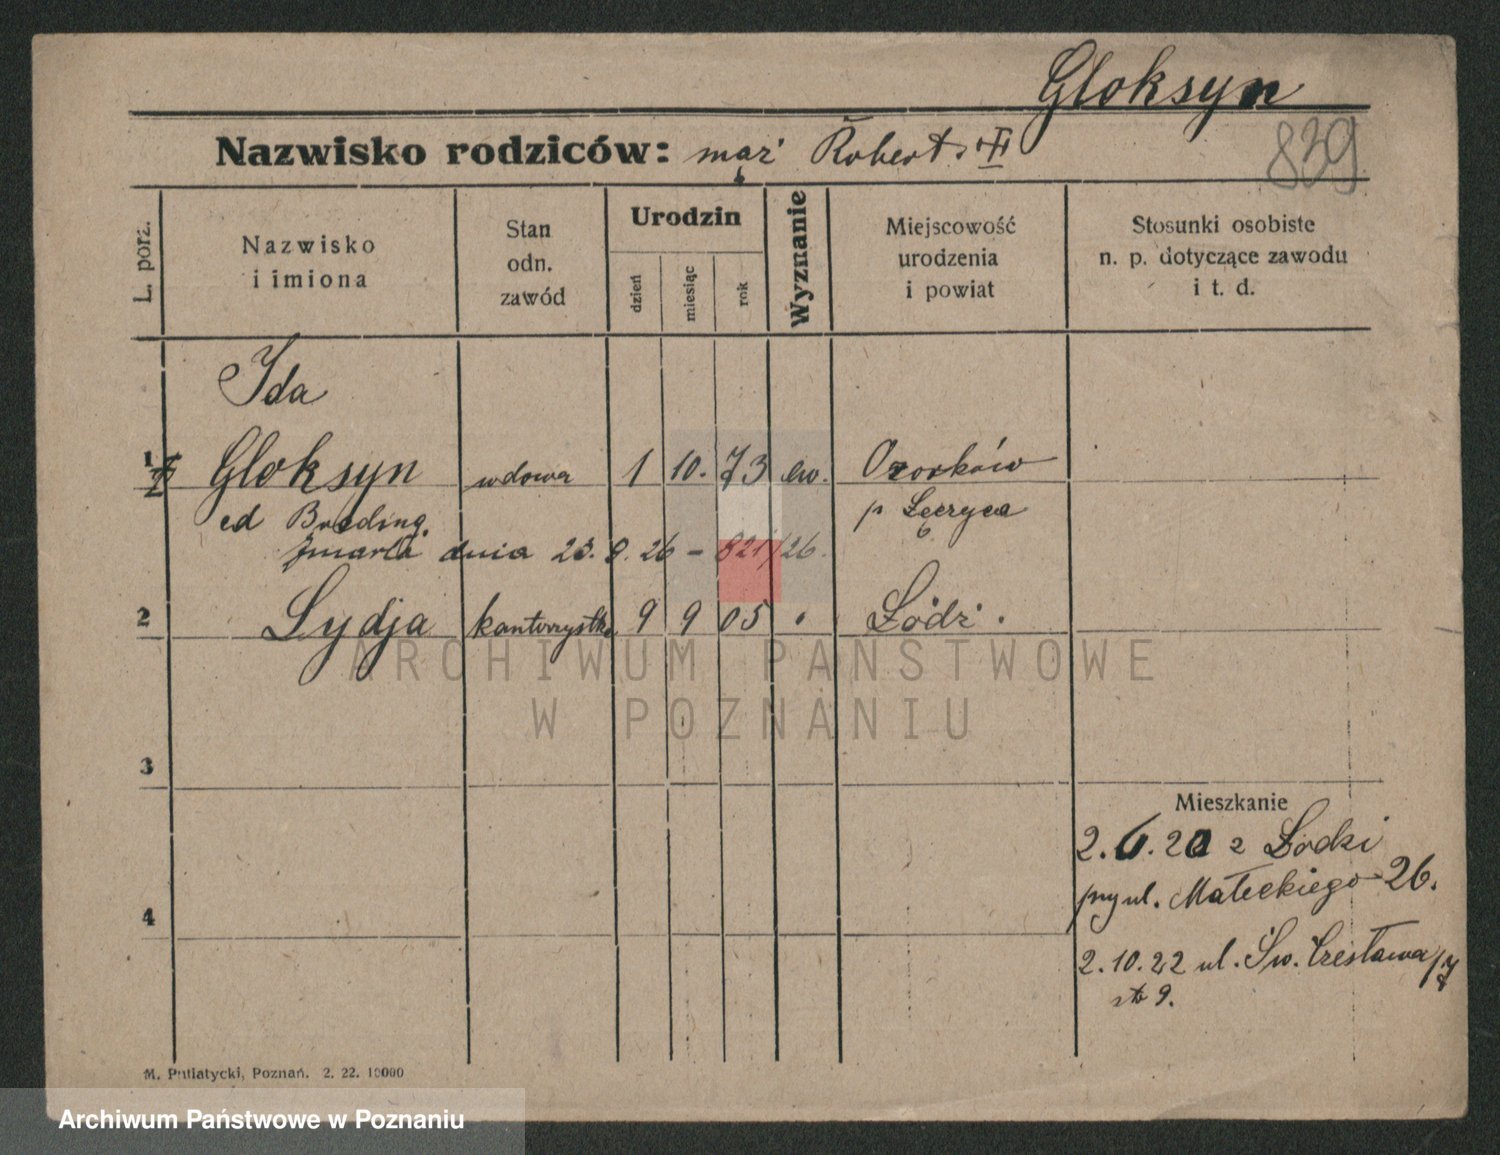 Gloksyn
839
Nazwisko rodziców: mąż Robert
L. porz.
Nazwisko
i imiona
Stan
odn.
zawód
Urodzin
dzień
miesiąc
rok
Wyznanie
Miejscowość
urodzenia
i powiat
Stosunki osobiste
n. p. dotyczące zawodu
i t. d.
Ida
1 Gloksyn wdowa 1 10. 73 ew. Ozorków
p Łęczyca
zmarła dnia 23. 8. 26 – 821/26.
2 Lydja kantorzystka 9 9 05 Łódź.
ARCHIWUM PAŃSTWOWE
W POZNANIU
3
Mieszkanie
2. 6. 20 z Łodzi
przy ul. Małeckiego 26.
4
2. 10. 22 ul. Św. Czesława
9.
M. Putiatycki, Poznań. 2. 22. 10000
Archiwum Państwowe w Poznaniu